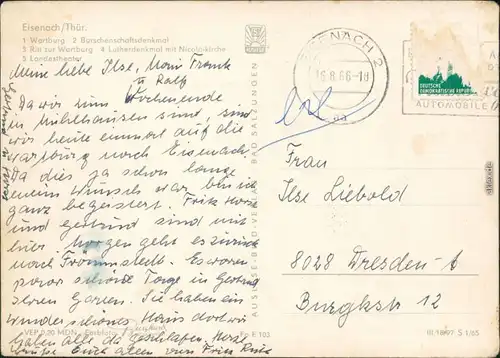 Eisenach/Thür.
1 Wartburg 2 Burschenschaftsdenkmal
3 Ritt zur Wartburg 4 Lutherdenkmal mit Nicolaikirche
5 Landestheater
EISENACH 2
16.8.66-18
DEUTSCHE
DEMOKRATISCHE REPUBLIK
AUTOMOBILE
Meine liebe Ilse, Frank
u Ralf
Da wir zum Wochenende
in Mühlhausen sind, sind
wir heute einmal auf die
Wartburg nach Eisenach.
Da dies ja schon lange
Wunsch war, bin ich
ganz begeistert. Fritz Horst
und Gertrud sind mit
hier. Morgen geht es zurück
nach Frömmstedt. Es waren
paar schöne Tage in Gertrud
ihren Garten. Sie haben ein
wunderschönes Haus dort wir
haben alle da geschlafen
Euch allen von Fritz
AUSLESE-BILD-VERLAG BAD SALZUNGEN
Frau
Ilse Liebold
8028 Dresden-A
Burgkstr 12
VEP 0,20 MDN
Fo E 103
III 18 97 S 1/65